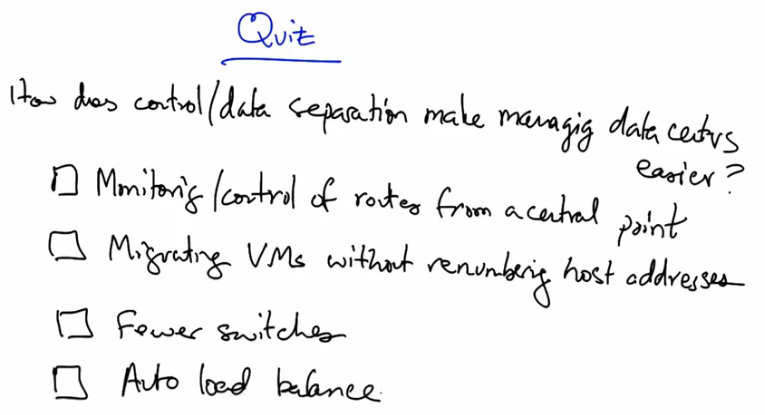 Quiz
How does control/data separation make managig data centers
easier?
Monitoring/control of routes from a central point
Migrating VMs without renumbering host addresses
Fewer switches
Auto load balance.